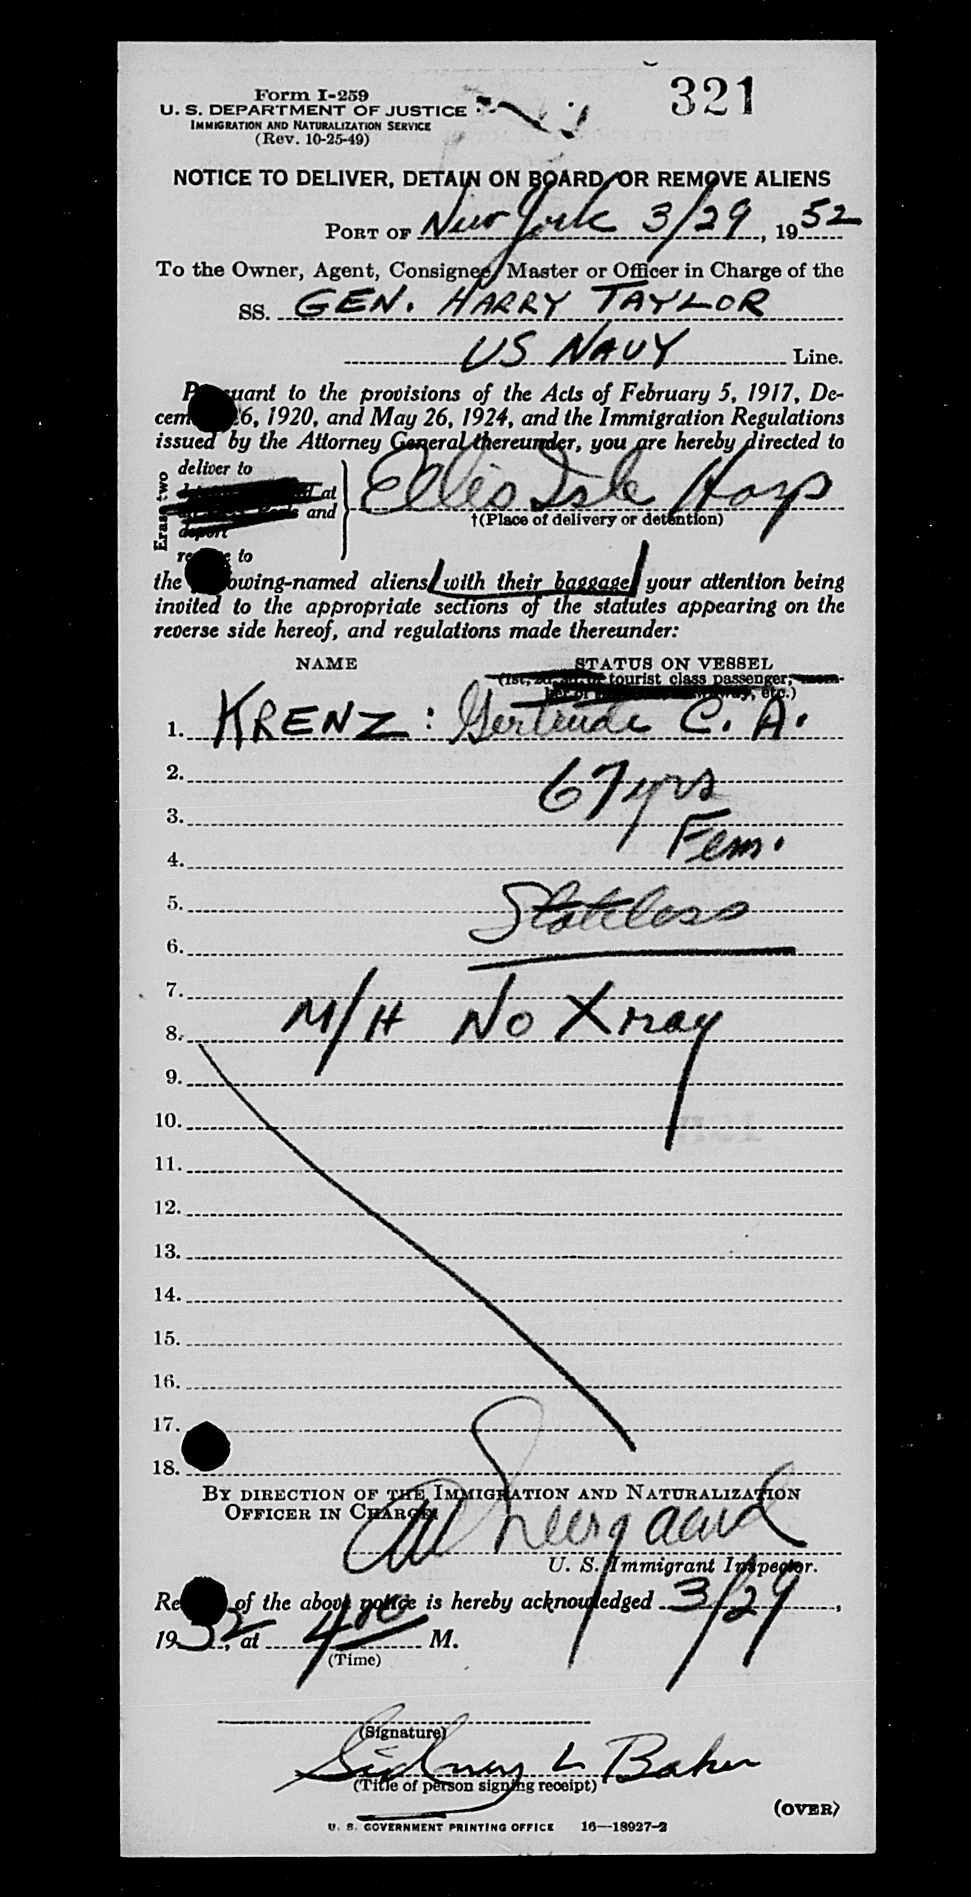 321
Form I-259
U. S. DEPARTMENT OF JUSTICE
IMMIGRATION AND NATURALIZATION SERVICE
(Rev. 10-25-49)
NOTICE TO DELIVER, DETAIN ON BOARD, OR REMOVE ALIENS
PORT OF New York 3/29, 1952
To the Owner, Agent, Consignee, Master or Officer in Charge of the
SS. GEN. HARRY TAYLOR
US NAVY Line.
Pursuant to the provisions of the Acts of February 5, 1917, De-
cem 26, 1920, and May 26, 1924, and the Immigration Regulations
issued by the Attorney General thereunder, you are hereby directed to
Erase two
deliver to
at
and
deport
remove to
Ellis Isle Hosp
†(Place of delivery or detention)
the following-named aliens (with their baggage) your attention being
invited to the appropriate sections of the statutes appearing on the
reverse side hereof, and regulations made thereunder:
NAME STATUS ON VESSEL
(1st, 2d, 3d, or tourist class passenger, mem-
ber of etc.)
1. KRENZ : Gertrude C. A.
2. 67 yrs
3. Fem.
4.
5. Stateless
6.
7.
8. M/H No Xray
9.
10.
11.
12.
13.
14.
15.
16.
17.
18.
BY DIRECTION OF THE IMMIGRATION AND NATURALIZATION
OFFICER IN CHARGE:
U. S. Immigrant Inspector.
Re of the above notice is hereby acknowledged 3/29,
1952, at 4 00 M.
(Time)
(Signature)
Sidney L Baker
(Title of person signing receipt)
(OVER)
U. S. GOVERNMENT PRINTING OFFICE 16—18927-2